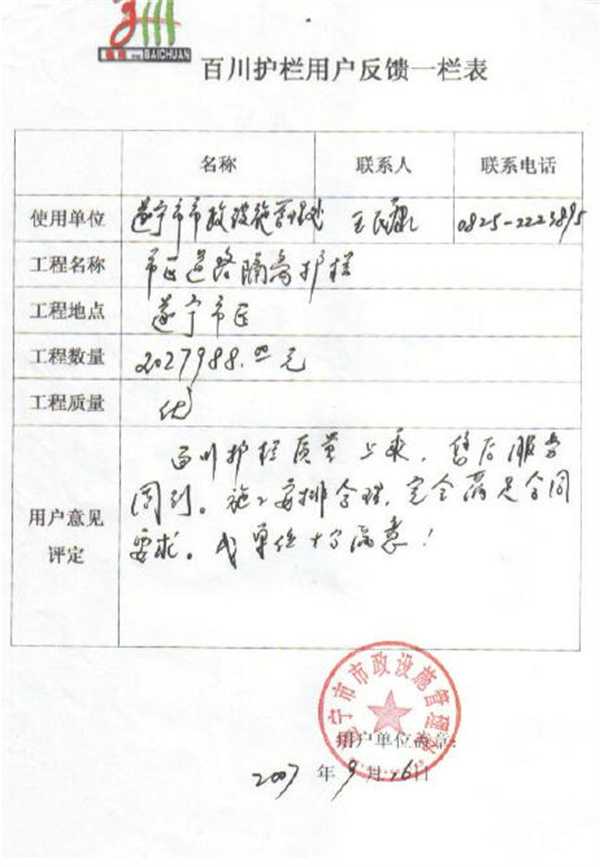 BAICHUAN
百川护栏用户反馈一栏表
名称 联系人 联系电话
使用单位 遂宁市市政设施管理处 王民康 0825-2223895
工程名称 市区道路隔离护栏
工程地点 遂宁市区
工程数量 2027988.00元
工程质量 优
用户意见评定
百川护栏质量上乘，售后服务
周到。施工安排合理，完全满足合同
要求。我单位十分满意！
遂宁市市政设施管理处
用户单位盖章：
2007 年 9 月 26 日